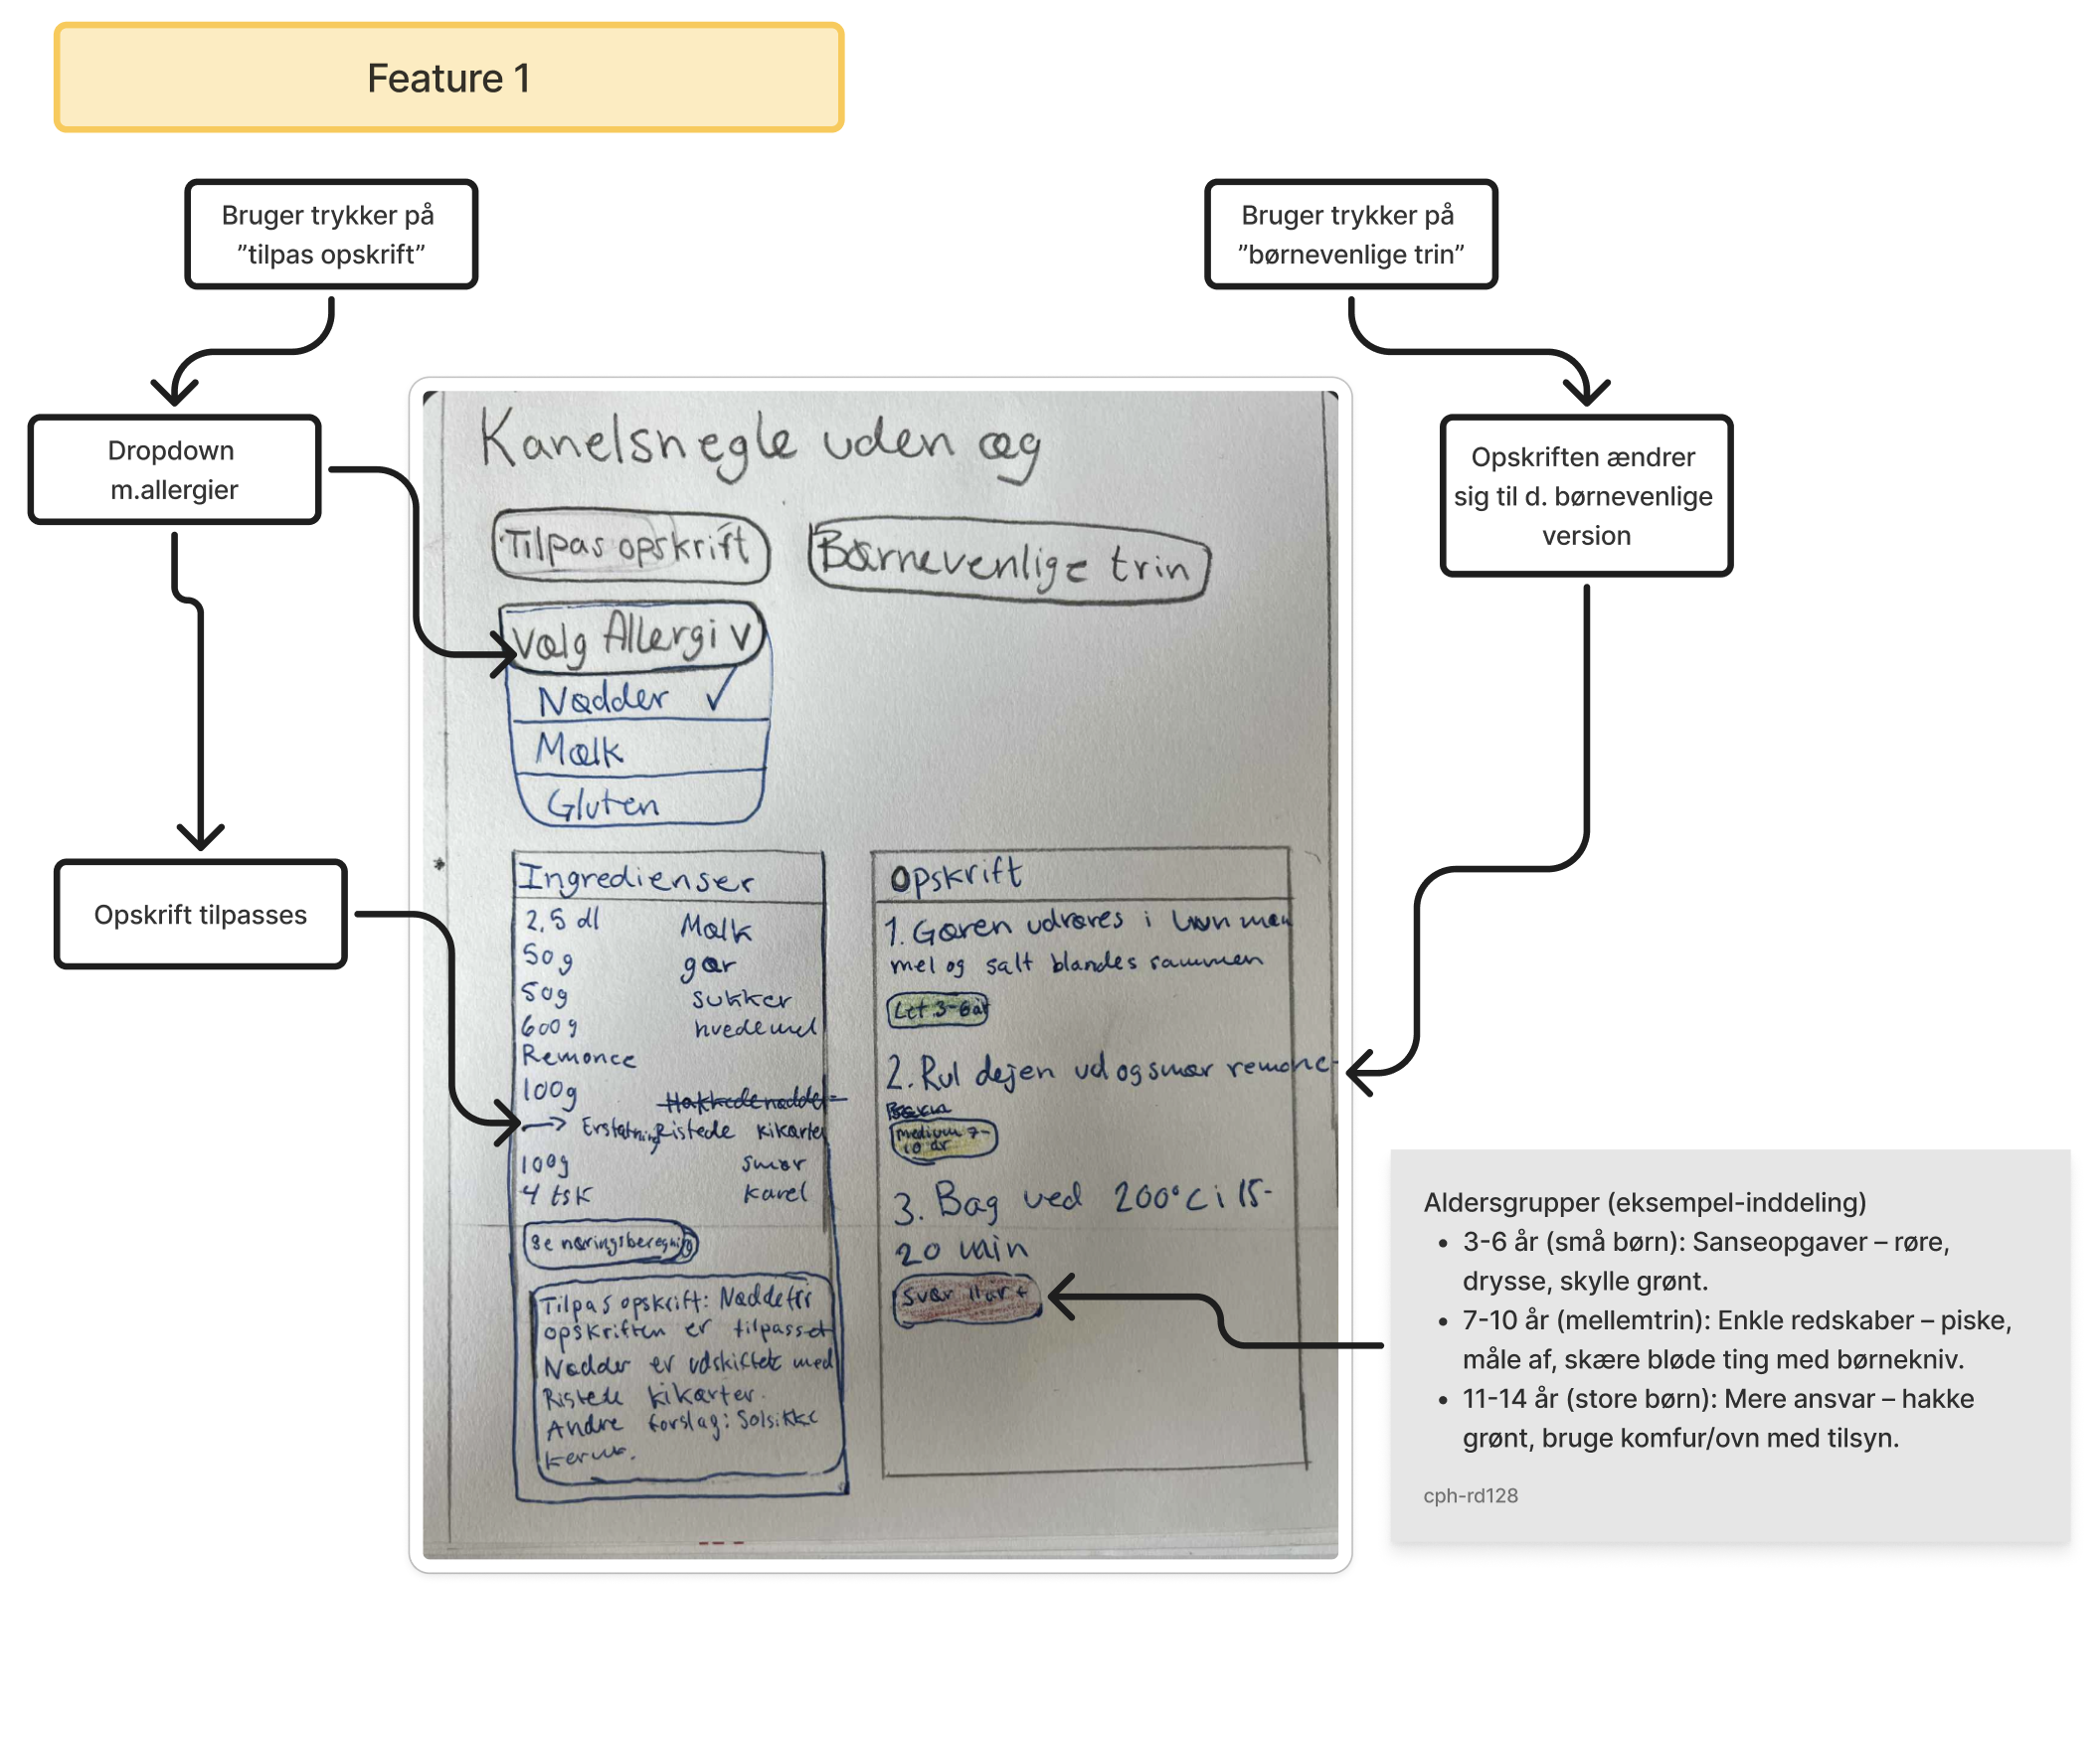 Feature 1
Bruger trykker på
”tilpas opskrift”
Bruger trykker på
”børnevenlige trin”
Dropdown
m.allergier
Opskriften ændrer
sig til d. børnevenlige
version
Opskrift tilpasses
Kanelsnegle uden æg
Tilpas opskrift
Børnevenlige trin
Vælg Allergi v
Nødder ✓
Mælk
Gluten
Ingredienser
2,5 dl Mælk
50g gær
50g sukker
600g hvedemel
Remonce
100g Hakkede nødder
→ Erstatning Ristede kikærter
100g smør
4 tsk kanel
Se næringsberegning
Tilpas opskrift: Nøddefri
opskriften er tilpasset
Nødder er udskiftet med
Ristede kikærter.
Andre forslag: Solsikke
kerner.
Opskrift
1. Gæren udrøres i
mel og salt blandes sammen
Let 3-6 år
2. Rul dejen ud og smør remonce
medium 7-
10 år
3. Bag ved 200°C i 15-
20 min
Svær 11år+
Aldersgrupper (eksempel-inddeling)
• 3-6 år (små børn): Sanseopgaver – røre,
drysse, skylle grønt.
• 7-10 år (mellemtrin): Enkle redskaber – piske,
måle af, skære bløde ting med børnekniv.
• 11-14 år (store børn): Mere ansvar – hakke
grønt, bruge komfur/ovn med tilsyn.
cph-rd128